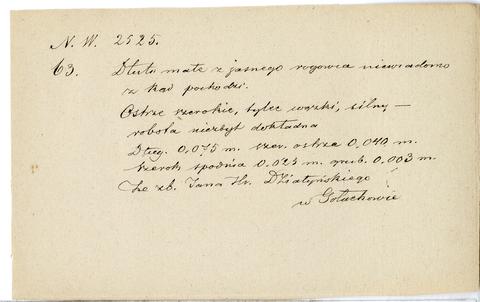 N. W. 2525.
63. Dłuto małe z jasnego rogowca niewiadomo
z kąd pochodzi.
Ostrze szerokie, tylec wązki, silny –
robota niezbyt dokładna
Dług. 0,075 m. szer. ostrza 0,040 m.
szerok spodnia 0.023 m. grub. 0.003 m.
Ze zb. Jana Hr. Działyńskiego
w Gołuchowie